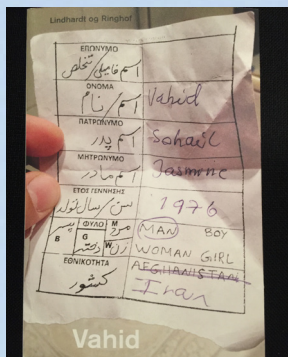 Lindhardt og Ringhof
ΕΠΩΝΥΜΟ
اسم فامیلی/تخلص
ΟΝΟΜΑ
اسم/نام Vahid
ΠΑΤΡΩΝΥΜΟ
اسم پدر Sohail
ΜΗΤΡΩΝΥΜΟ
اسم مادر Jasmine
ΕΤΟΣ ΓΕΝΝΗΣΗΣ
سن/سال تولد 1976
پسر B ΦΥΛΟ G دختر M مرد W زن MAN BOY
WOMAN GIRL
ΕΘΝΙΚΟΤΗΤΑ AFGHANISTAN
کشور Iran
Vahid